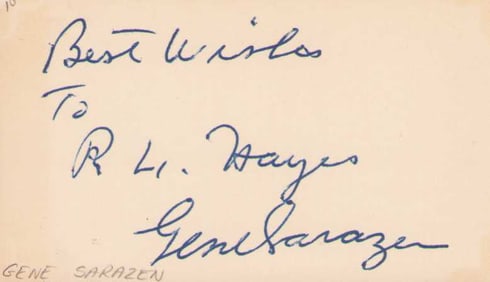 10
Best Wishes
To
R. L. Hayes
Gene Sarazen
GENE SARAZEN